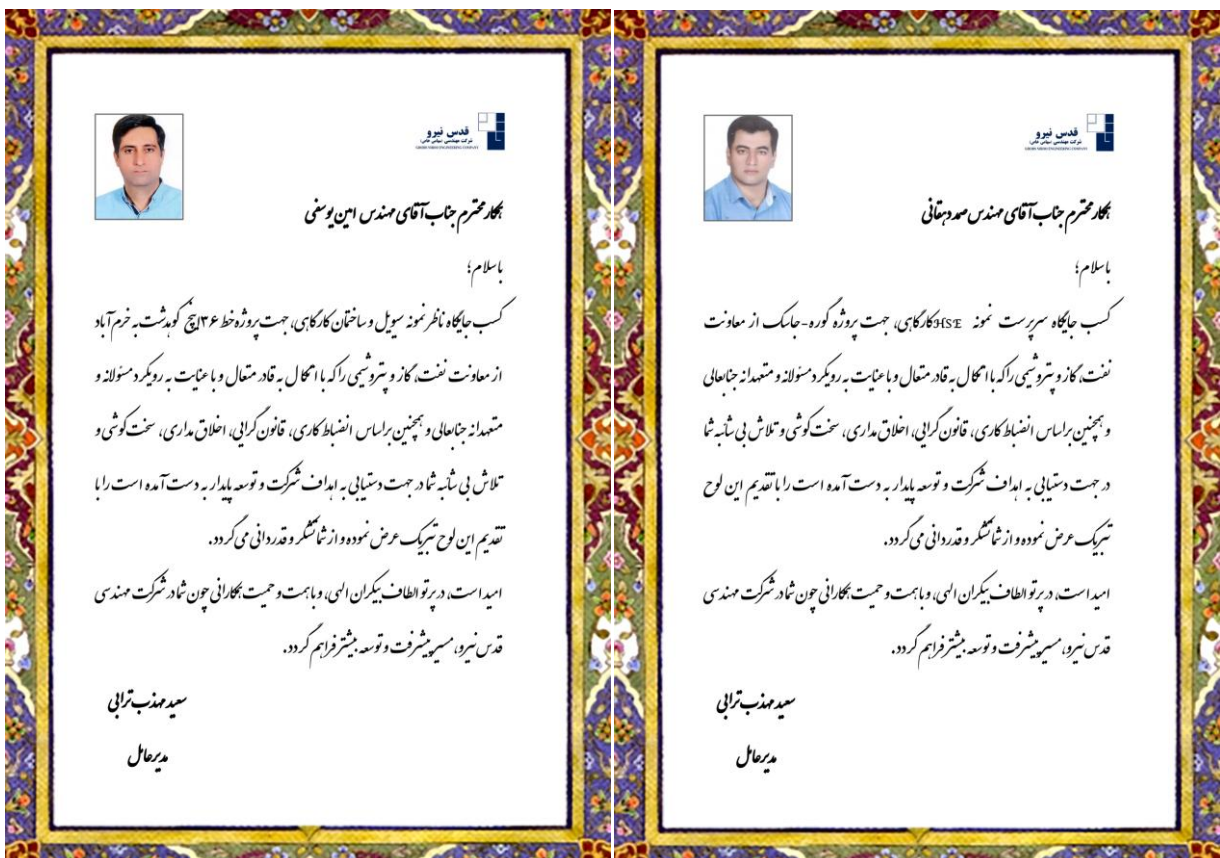 قدس نیرو
شرکت مهندسی (سهامی خاص)
GHODS NIROO ENGINEERING COMPANY
همکار محترم جناب آقای مهندس صمد دهقانی
باسلام؛
کسب جایگاه سرپرست نمونه HSE کارگاهی، جهت پروژه گوره-جاسک از معاونت
نفت، گاز و پتروشیمی را که با اتکال به قادر متعال و با عنایت به رویکرد مسئولانه و متعهدانه جنابعالی
و همچنین براساس انضباط کاری، قانون گرایی، اخلاق مداری، سخت کوشی و تلاش بی شائبه شما
در جهت دستیابی به اهداف شرکت و توسعه پایدار به دست آمده است را با تقدیم این لوح
تبریک عرض نموده و از شما تشکر و قدردانی می گردد.
امید است، در پرتو الطاف بیکران الهی، و با همت و حمیت همکارانی چون شما در شرکت مهندسی
قدس نیرو، مسیر پیشرفت و توسعه بیشتر فراهم گردد.
سعید مهذب ترابی
مدیرعامل
قدس نیرو
شرکت مهندسی (سهامی خاص)
GHODS NIROO ENGINEERING COMPANY
همکار محترم جناب آقای مهندس امین یوسفی
باسلام؛
کسب جایگاه ناظر نمونه سویل و ساختمان کارگاهی، جهت پروژه خط ۳۶ اینچ کوهدشت به خرم آباد
از معاونت نفت، گاز و پتروشیمی را که با اتکال به قادر متعال و با عنایت به رویکرد مسئولانه و
متعهدانه جنابعالی و همچنین براساس انضباط کاری، قانون گرایی، اخلاق مداری، سخت کوشی و
تلاش بی شائبه شما در جهت دستیابی به اهداف شرکت و توسعه پایدار به دست آمده است را با
تقدیم این لوح تبریک عرض نموده و از شما تشکر و قدردانی می گردد.
امید است، در پرتو الطاف بیکران الهی، و با همت و حمیت همکارانی چون شما در شرکت مهندسی
قدس نیرو، مسیر پیشرفت و توسعه بیشتر فراهم گردد.
سعید مهذب ترابی
مدیرعامل